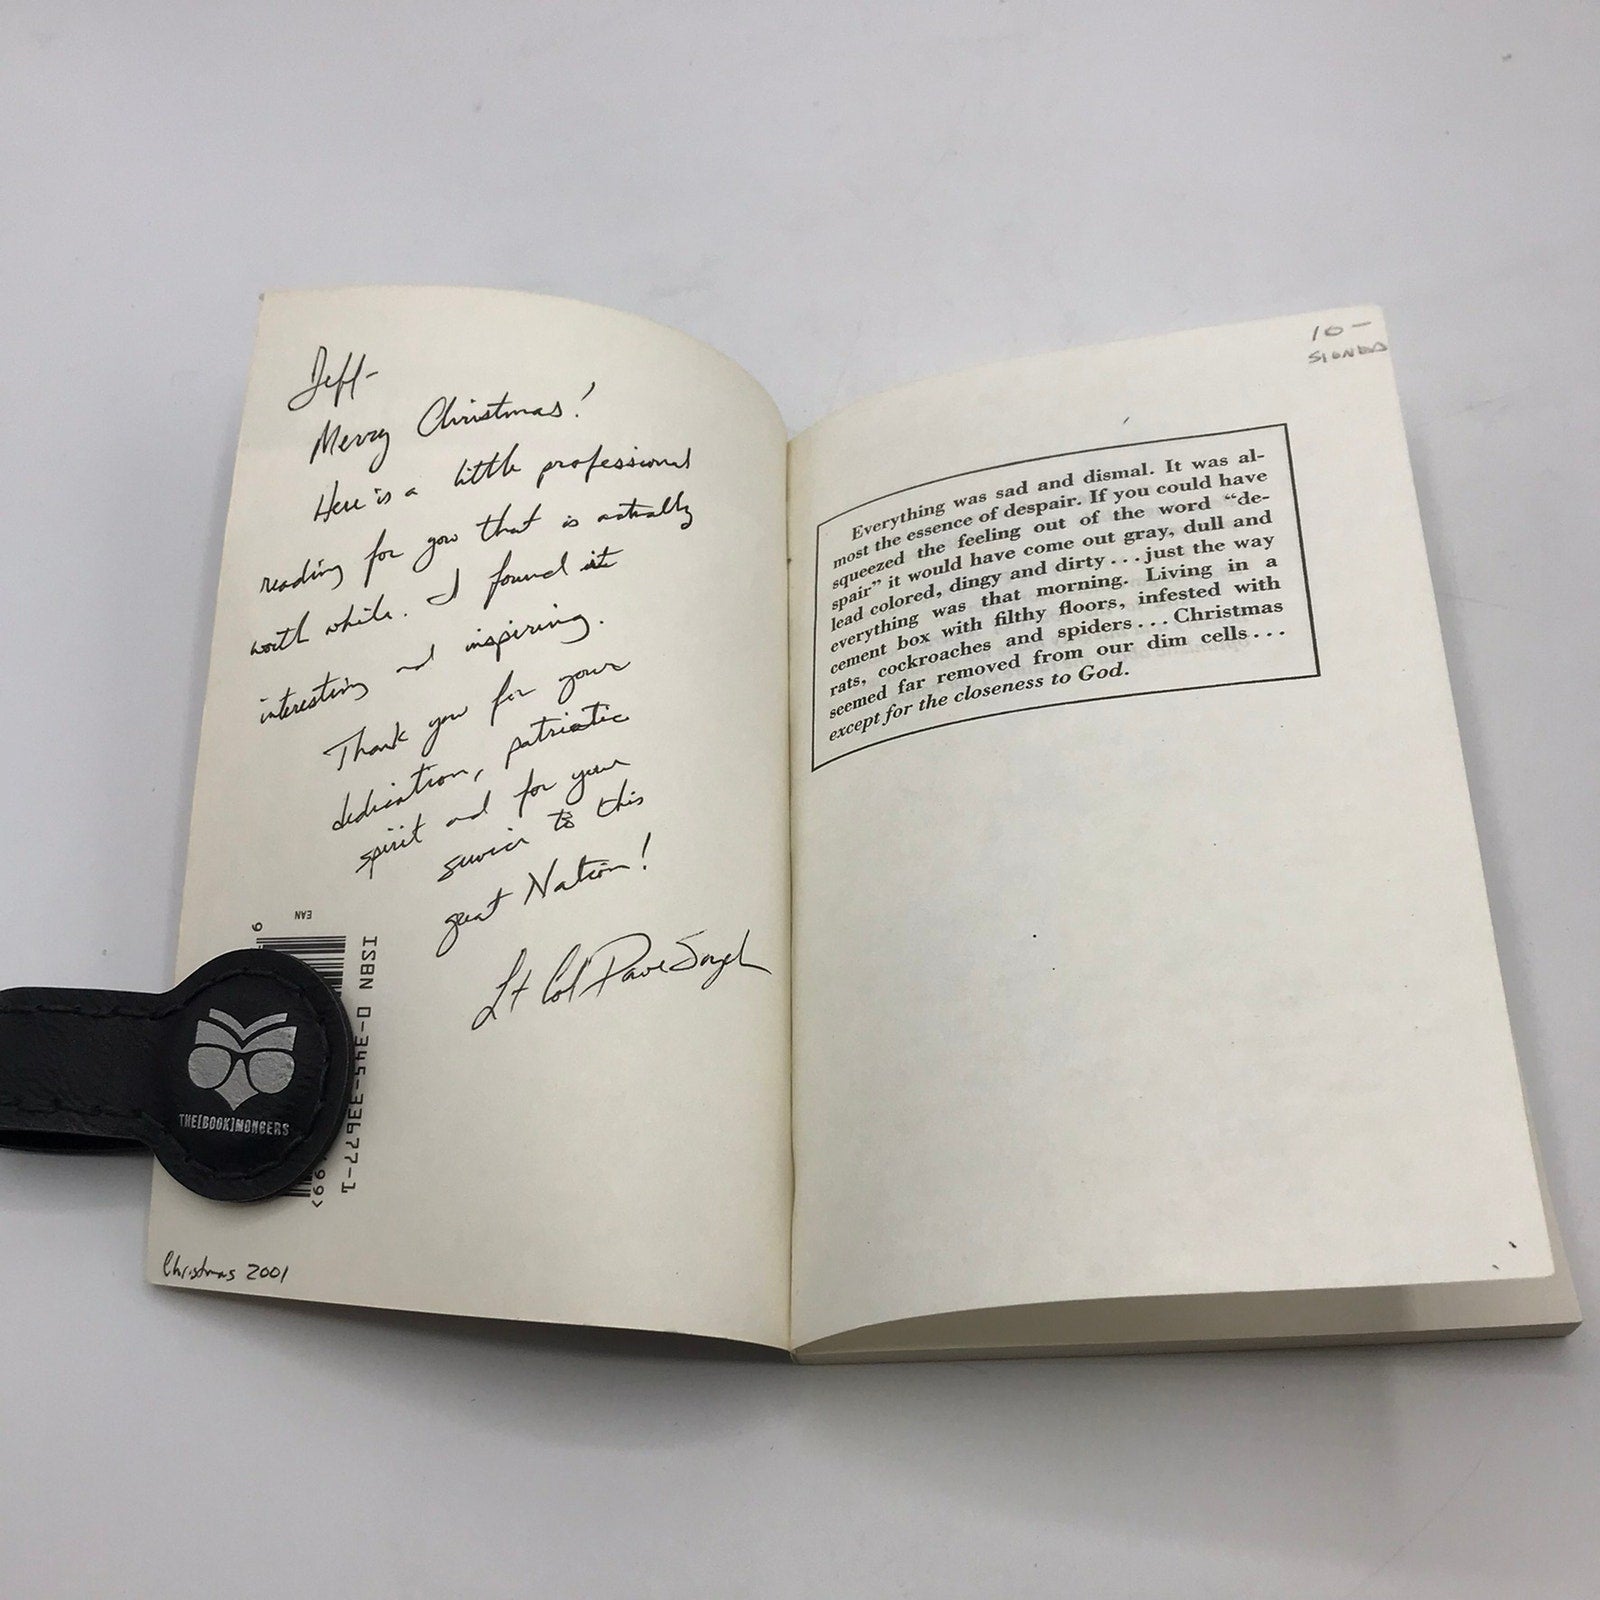 Jeff-
Merry Christmas!
Here is a little professional
reading for you that is actually
worth while. I found it
interesting and inspiring.
Thank you for your
dedication, patriotic
spirit and for your
service to this
great Nation!
Lt Col Dave
EAN
9
ISBN 0-345-33677-1
99>
THE[BOOK]MONGERS
Christmas 2001
10-
SIGNED
Everything was sad and dismal. It was al-
most the essence of despair. If you could have
squeezed the feeling out of the word “de-
spair” it would have come out gray, dull and
lead colored, dingy and dirty...just the way
everything was that morning. Living in a
cement box with filthy floors, infested with
rats, cockroaches and spiders...Christmas
seemed far removed from our dim cells...
except for the closeness to God.